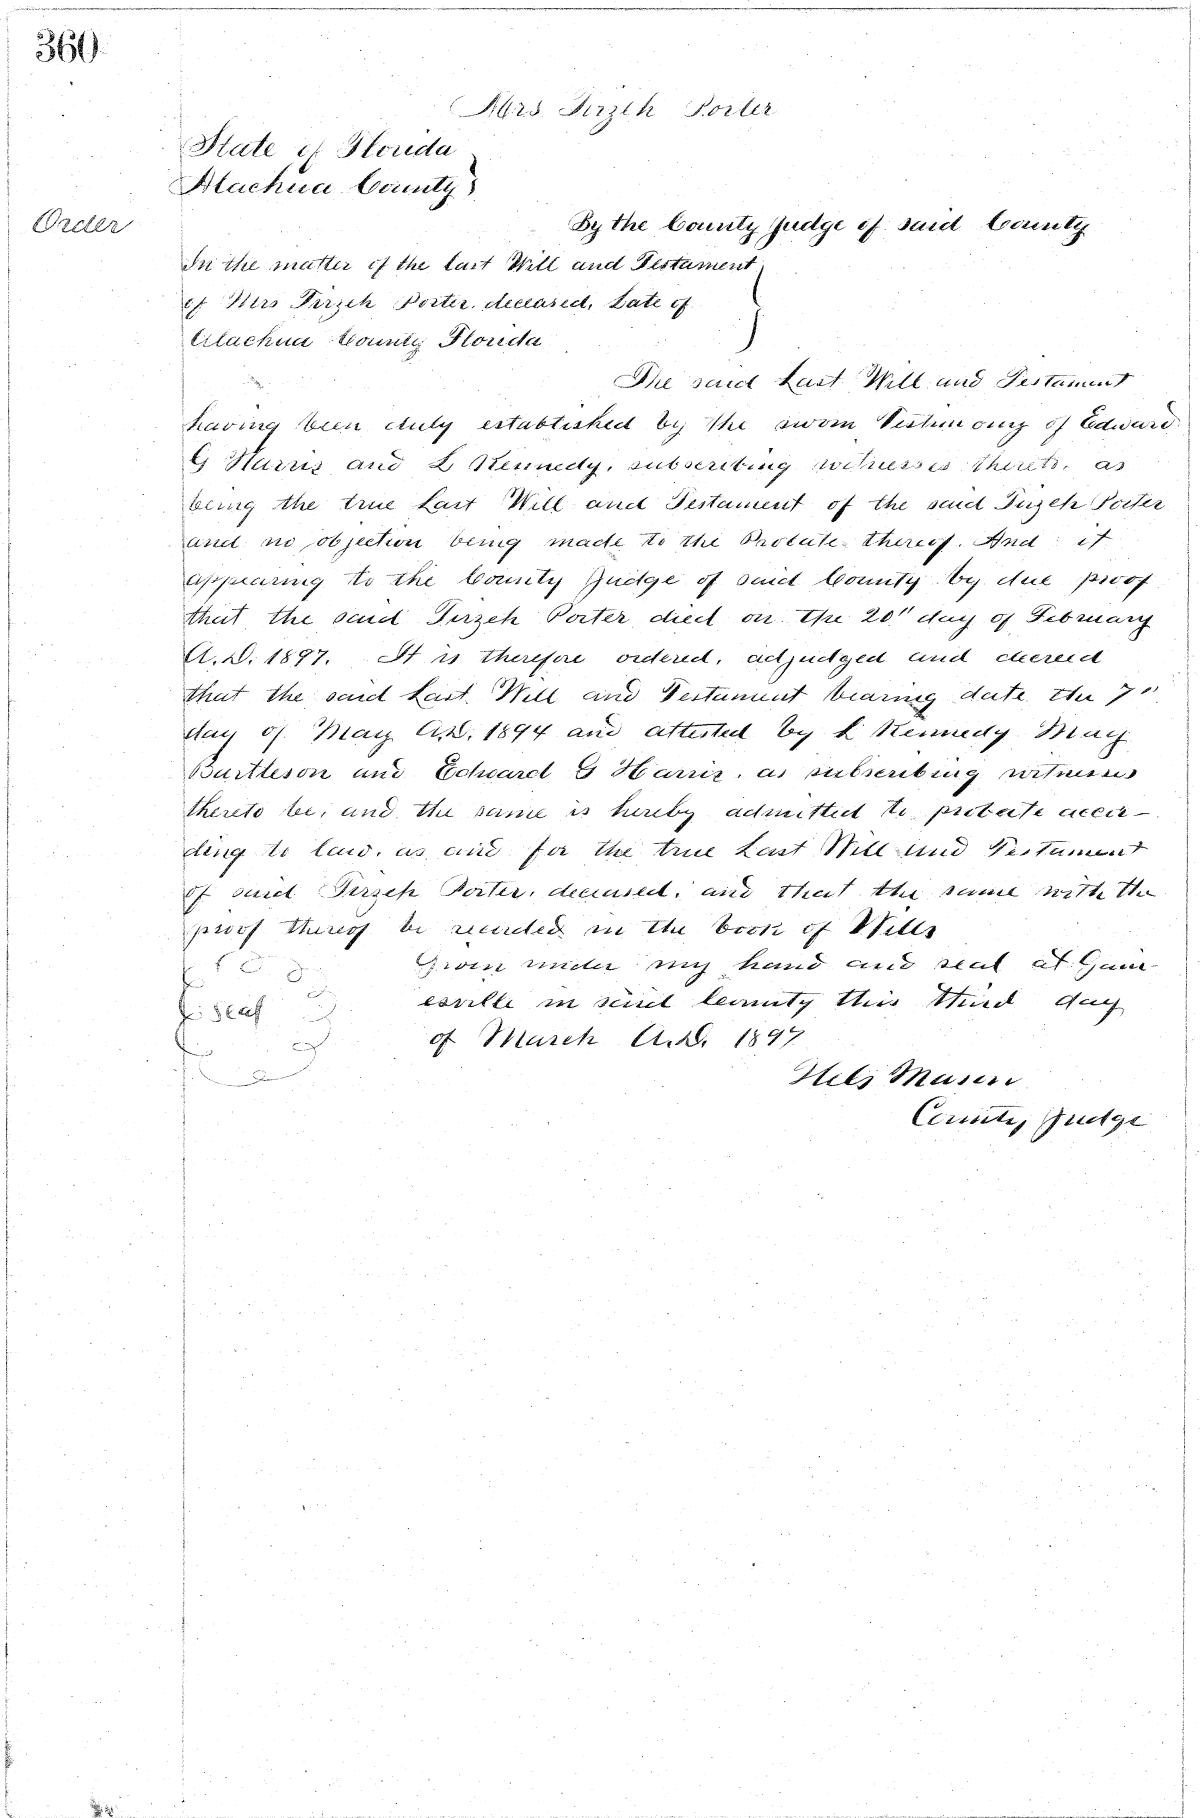 360
Mrs Tirzeh Porter
State of Florida
Alachua County
Order
By the County Judge of said County
In the matter of the last Will and Testament
of Mrs Tirzeh Porter, deceased, Late of
Alachua County Florida
The said Last Will and Testament
having been duly established by the sworn Testimony of Edward
G Harris and L Kennedy, subscribing witnesses thereto, as
being the true Last Will and Testament of the said Tirzeh Porter
and no objection being made to the Probate thereof. And it
appearing to the County Judge of said County by due proof
that the said Tirzeh Porter died on the 20" day of February
A.D. 1897. It is therefore ordered, adjudged and decreed
that the said Last Will and Testament bearing date the 7"
day of May A.D. 1894 and attested by L Kennedy May
Burtleson and Edward G Harris, as subscribing witnesses
thereto be, and the same is hereby admitted to probate accor-
ding to law, as and for the true Last Will and Testament
of said Tirzeh Porter, deceased, and that the same with the
proof thereof be recorded in the book of Wills
Given under my hand and seal at Gain-
esville in said County this third day
Seal
of March A.D. 1897
County Judge